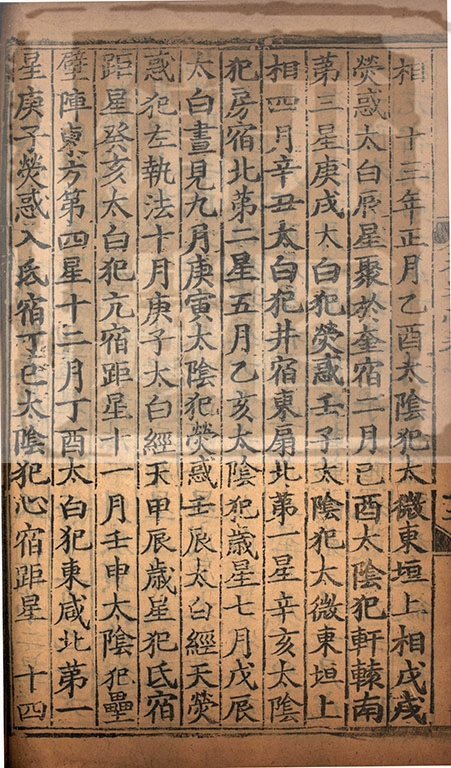 相 十三年正月乙酉太陰犯太微東垣上相戊戌
熒惑太白辰星聚於奎宿二月己酉太陰犯軒轅南
第三星庚戌太白犯熒惑壬子太陰犯太微東垣上
相四月辛丑太白犯井宿東扇北第一星辛亥太陰
犯房宿北第二星五月乙亥太陰犯歲星七月戊辰
太白晝見九月庚寅太陰犯熒惑壬辰太白經天熒
惑犯左執法十月庚子太白經天甲辰歲星犯氐宿
距星癸亥太白犯亢宿距星十一月壬申太陰犯壘
壁陣東方第四星十二月丁酉太白犯東咸北第一
星庚子熒惑入氐宿丁巳太陰犯心宿距星 十四